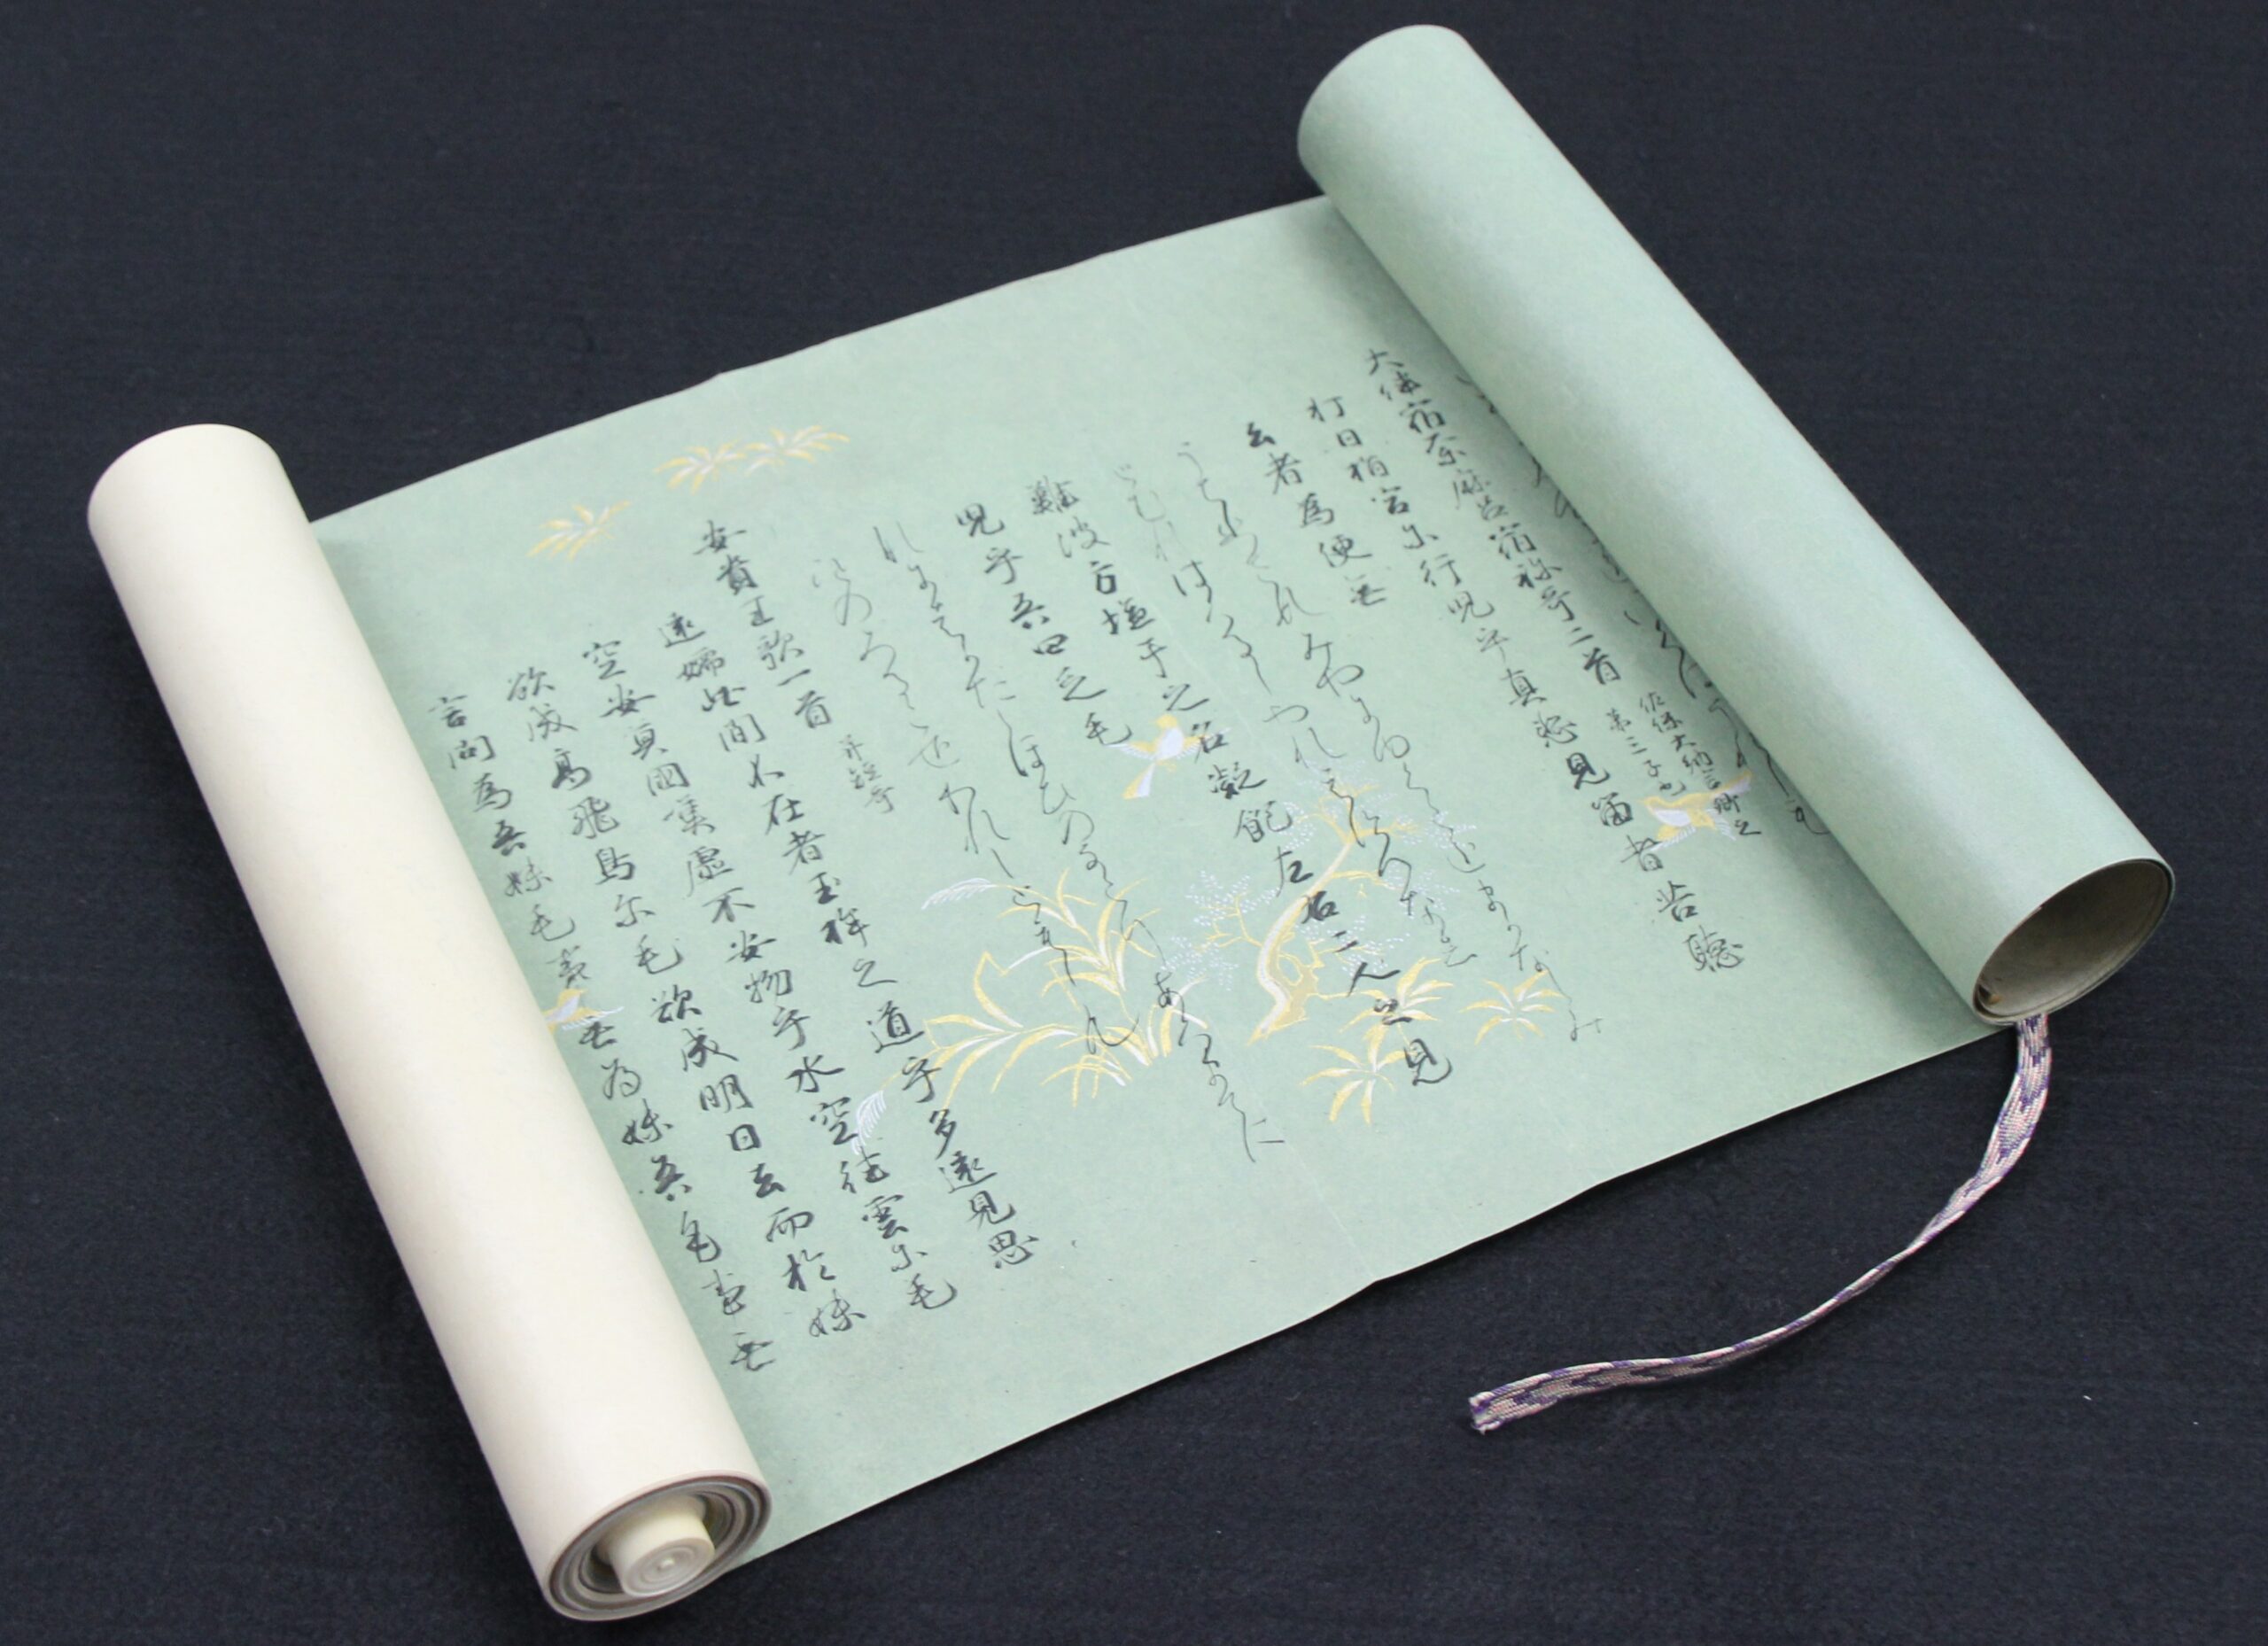 大伴宿奈麻呂宿祢哥二首 佐保大納言卿之
第三子也
打日指宮尓行児乎真悲見留者苦聴
去者為便無
みやにゆくこをまかなしみ
とむれはくるしやれはすへなし
難波方塩干之名凝飽左右二人之見
児乎吾四乏毛
なにはかたしほひのなこりあくまてに
ひとのみるこをわれしともしも
安貴王歌一首 并短哥
遠嬬此間不在者玉桙之道乎多遠見思
空安莫國嘆虚不安物乎水空徃雲尓毛
欲成高飛鳥尓毛欲成明日去而於妹
言問為吾妹毛事無為妹吾毛事無